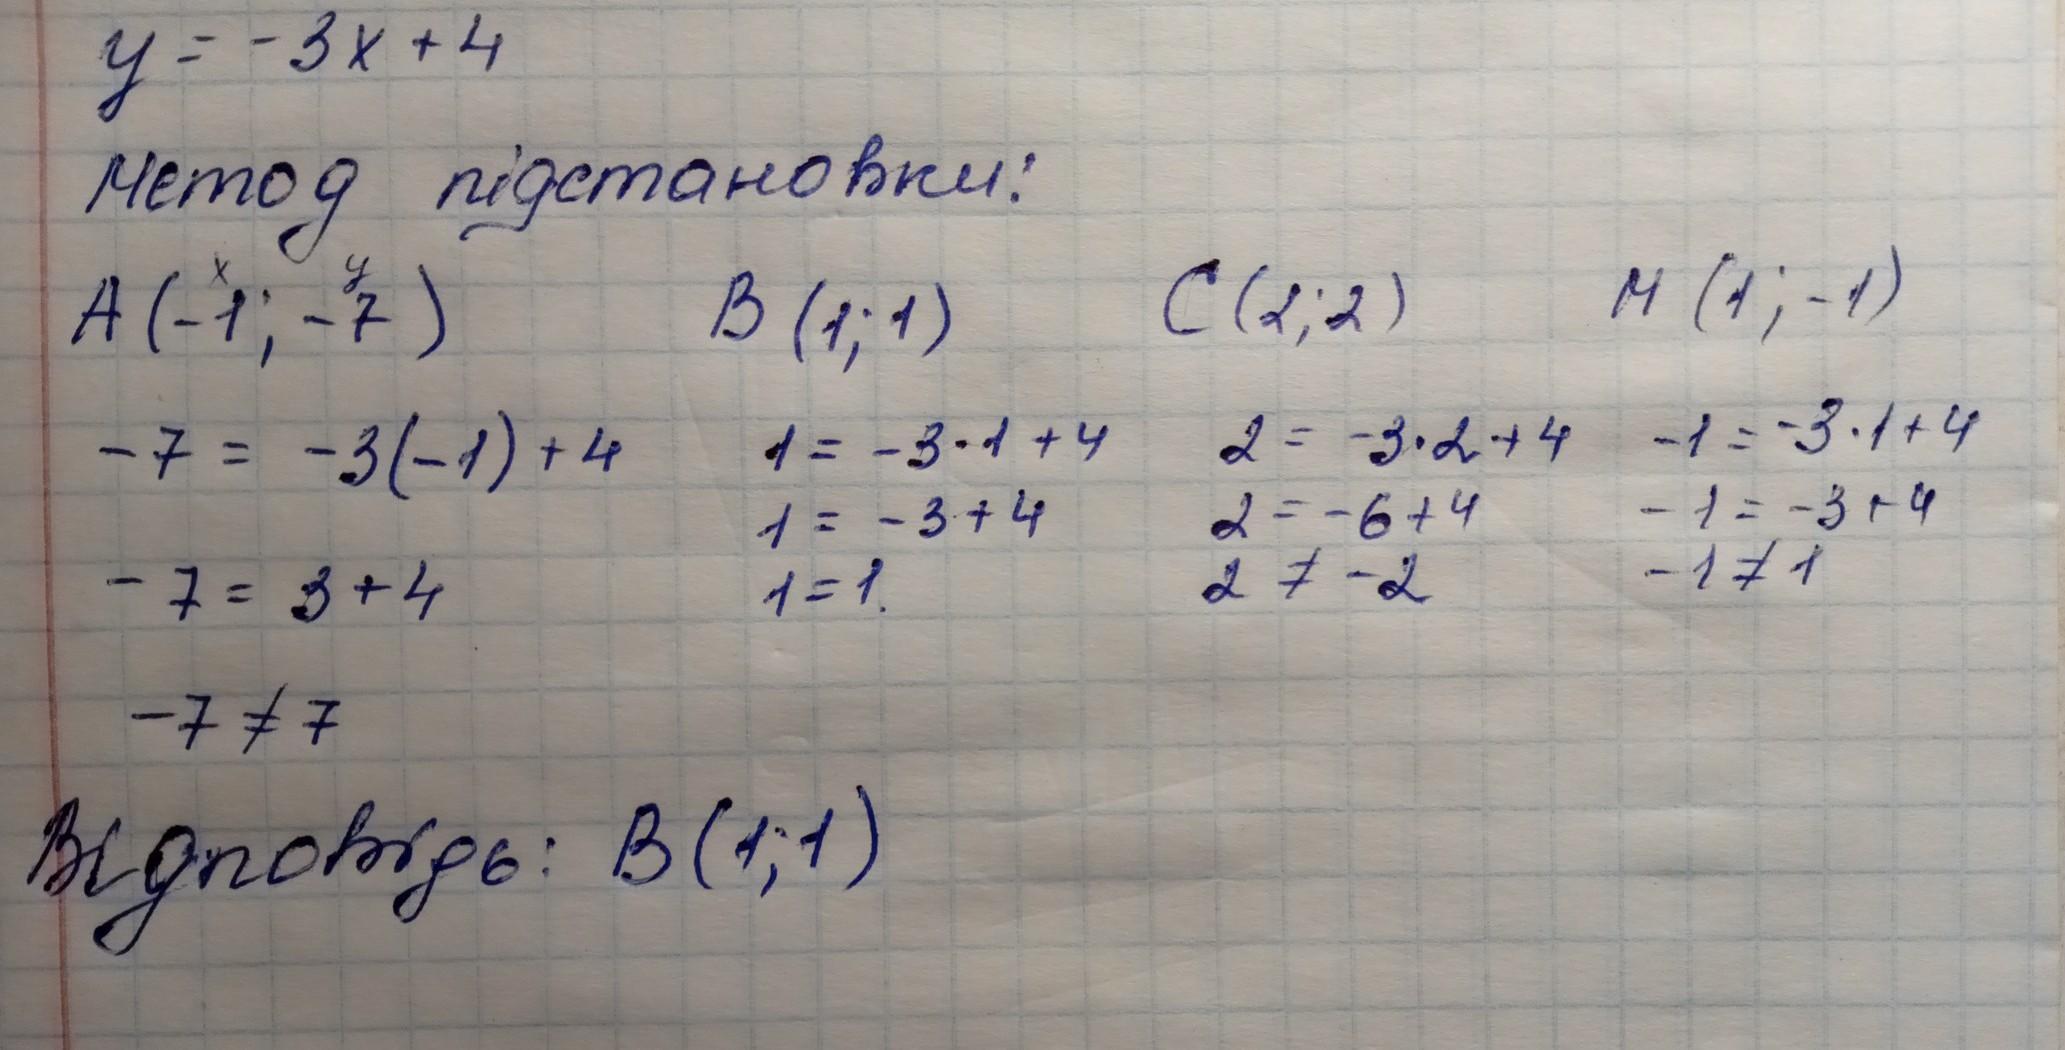 y = -3x + 4
Метод підстановки:
x y
A (-1; -7) B (1; 1) C (2; 2) M (1; -1)
-7 = -3(-1) + 4 1 = -3·1 + 4 2 = -3·2 + 4 -1 = -3·1 + 4
1 = -3 + 4 2 = -6 + 4 -1 = -3 + 4
-7 = 3 + 4 1 = 1. 2 ≠ -2 -1 ≠ 1
-7 ≠ 7
Відповідь: B (1; 1)